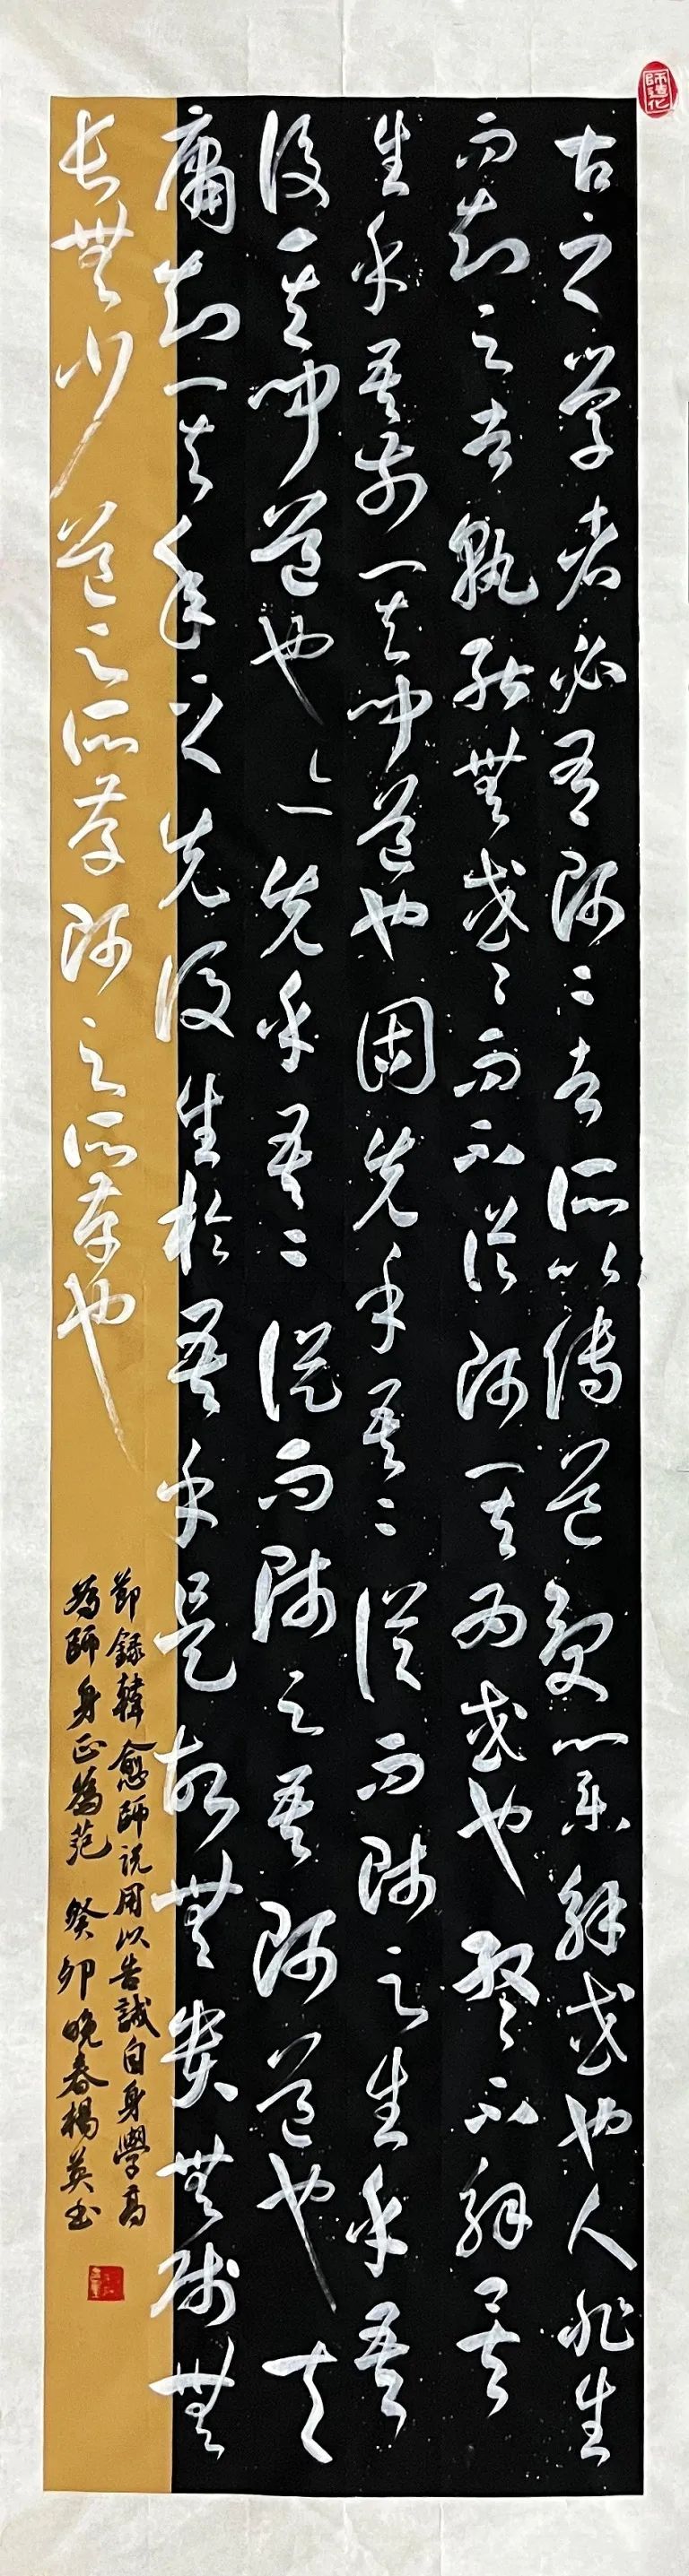 師造化
古之学者必有師〻者所以傳道受業解惑也人非生
而知之者孰能無惑〻而不從師其為惑也終不解矣
生乎吾前其聞道也固先乎吾〻從而師之生乎吾
後其聞道也亦先乎吾〻從而師之吾師道也夫
庸知其年之先後生於吾乎是故無貴無賤無
長無少道之所存師之所存也
節録韓愈師説用以告誡自身學高
為師身正為范 癸卯晚春楊英書